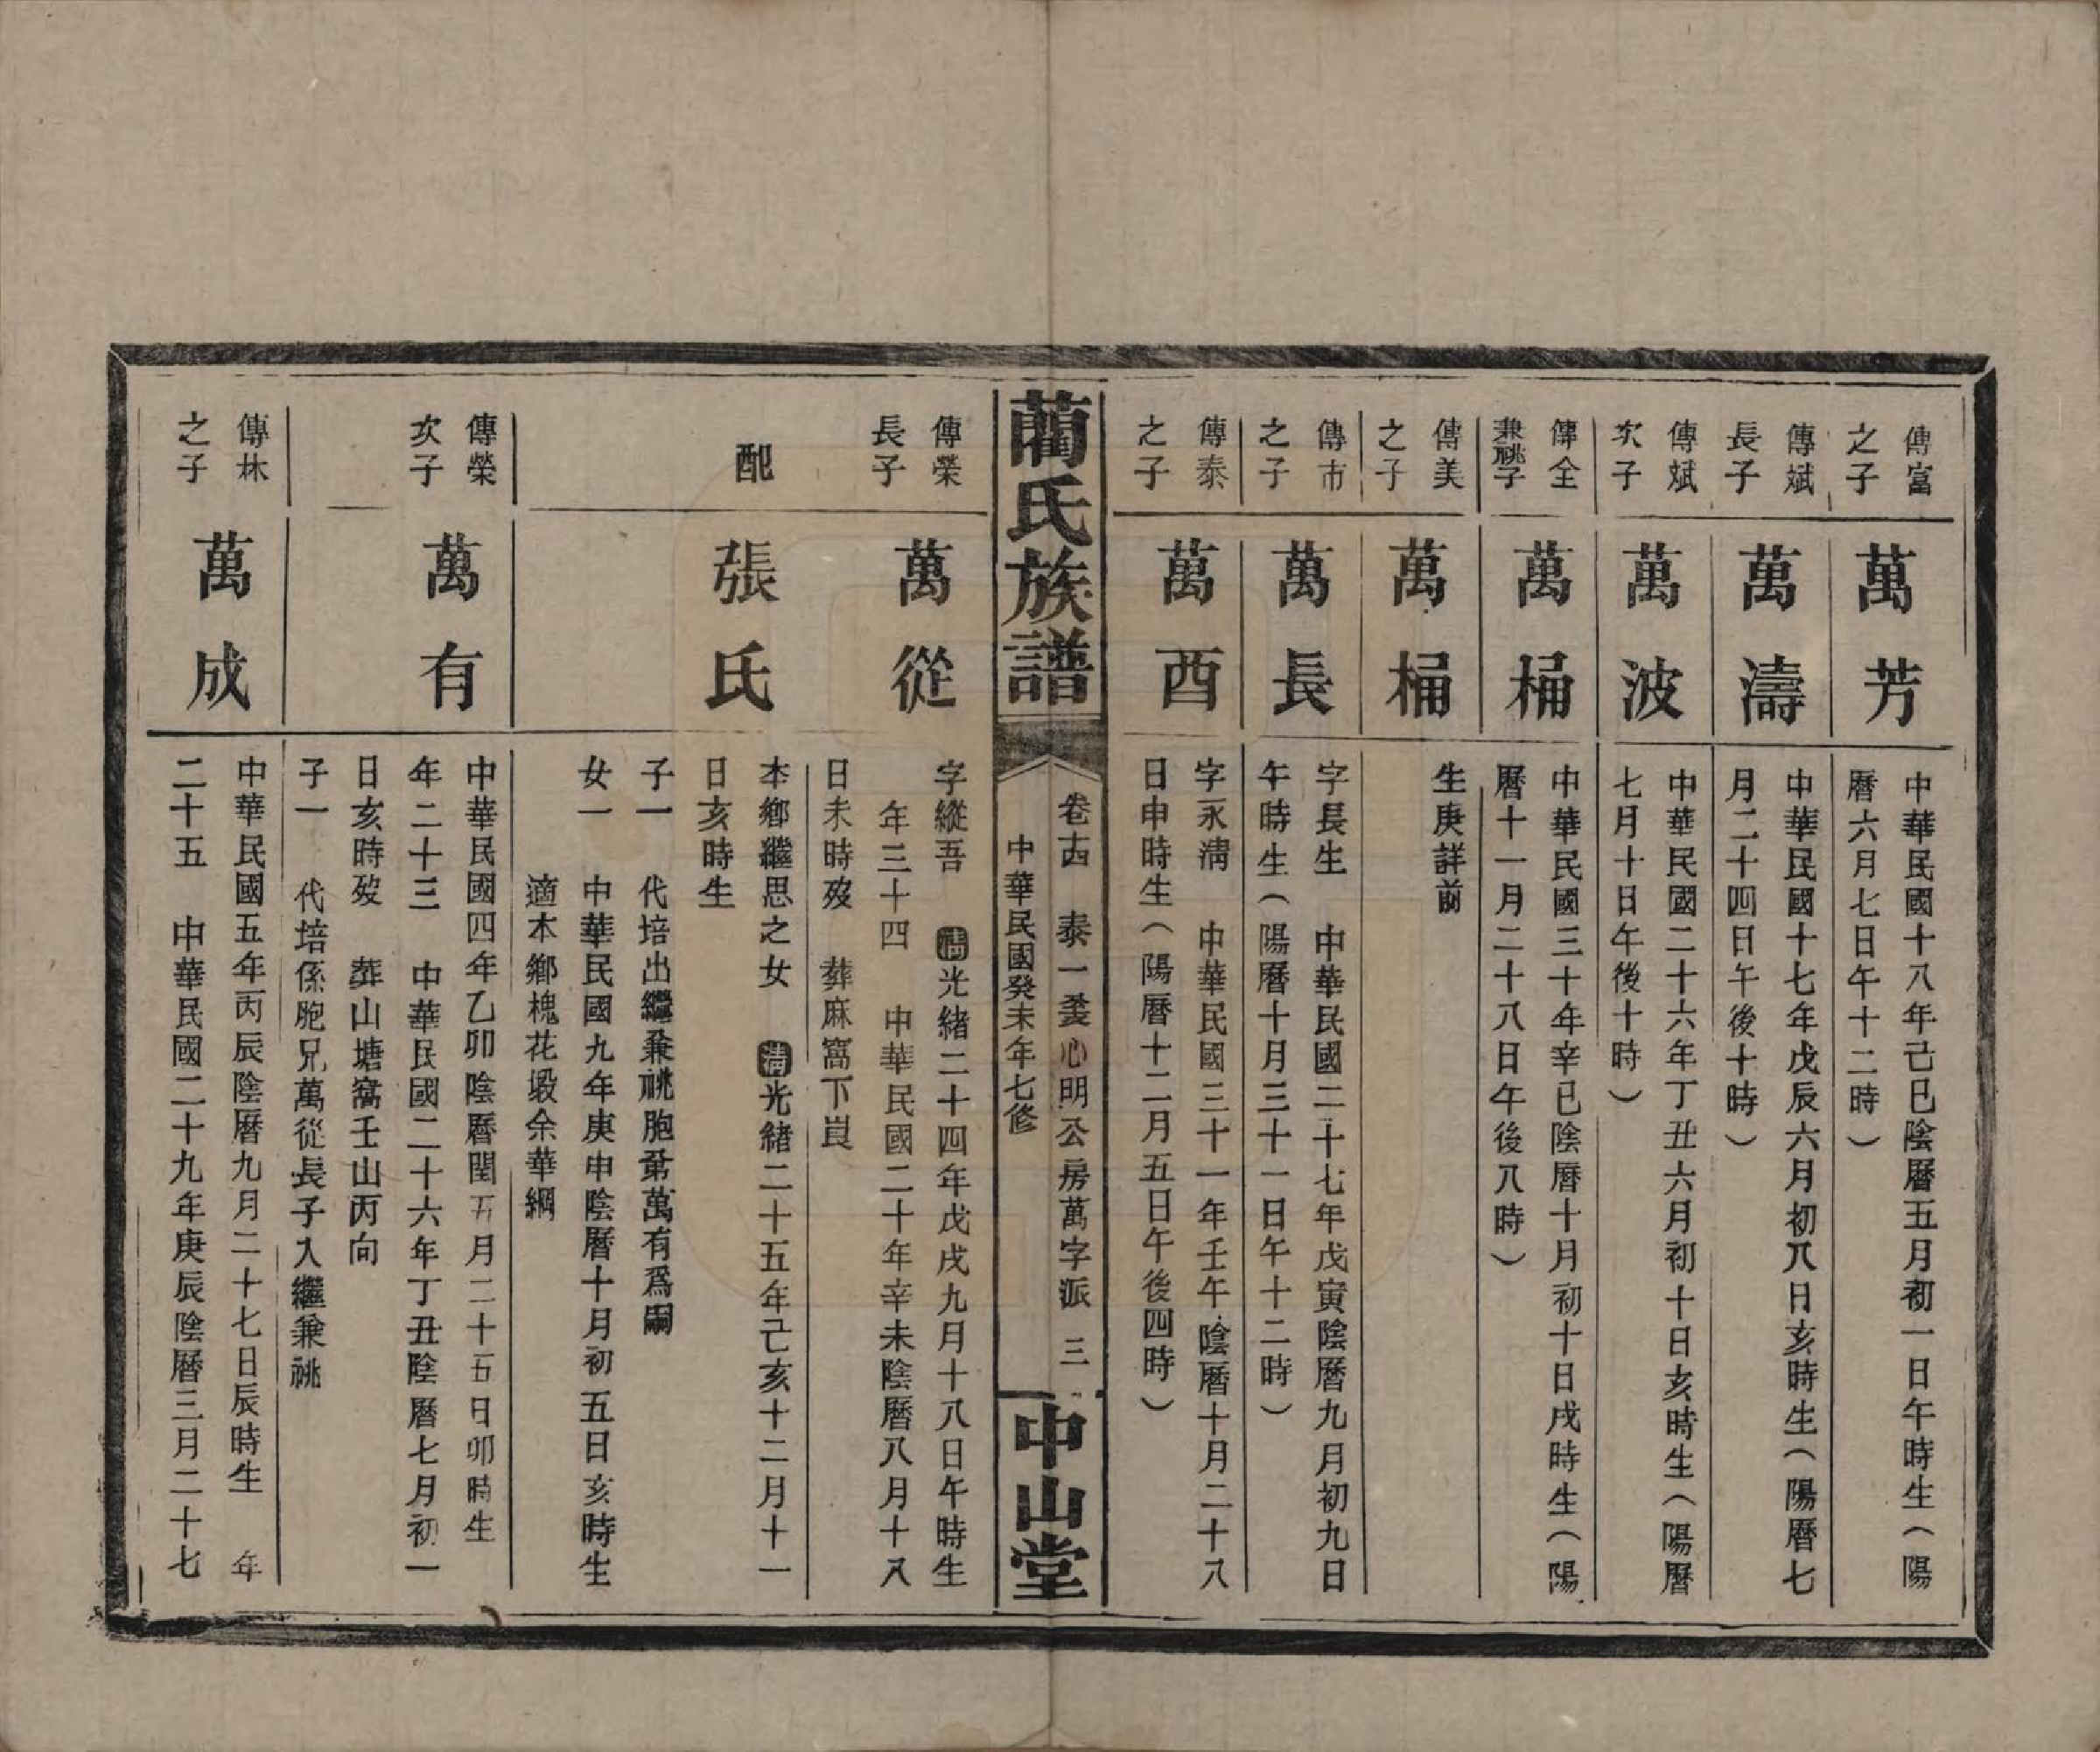 傳富之子
萬芳
中華民國十八年己巳陰曆五月初一日午時生（陽
曆六月七日午十二時）
傳斌長子
萬濤
中華民國十七年戊辰六月初八日亥時生（陽曆七
月二十四日午後十時）
傳斌次子
萬波
中華民國二十六年丁丑六月初十日亥時生（陽曆
七月十日午後十時）
傳全兼祧子
萬桶
中華民國三十年辛巳陰曆十月初十日戌時生（陽
曆十一月二十八日午後八時）
傳美之子
萬桶
生庚詳前
傳市之子
萬長
字長生　中華民國二十七年戊寅陰曆九月初九日
午時生（陽曆十月三十一日午十二時）
傳泰之子
萬酉
字永清　中華民國三十一年壬午陰曆十月二十八
日申時生（陽曆十二月五日午後四時）
藺氏族譜
卷十四　泰一㳟心明公房萬字派　三
中華民國癸未年七修
中山堂
傳榮長子
萬從
字縱吾　清光緒二十四年戊戌九月十八日午時生
年三十四　中華民國二十年辛未陰曆八月十八
日未時歿　葬麻窩下崀
配
張氏
本鄉繼思之女　清光緒二十五年己亥十二月十一
日亥時生
子一　代培出繼兼祧胞弟萬有爲嗣
女一　中華民國九年庚申陰曆十月初五日亥時生
適本鄉槐花塅余華綱
傳榮次子
萬有
中華民國四年乙卯陰曆閏五月二十五日卯時生
年二十三　中華民國二十六年丁丑陰曆七月初一
日亥時歿　葬山塘窩壬山丙向
子一　代培係胞兄萬從長子入繼兼祧
傳林之子
萬成
中華民國五年丙辰陰曆九月二十七日辰時生　年
二十五　中華民國二十九年庚辰陰曆三月二十七